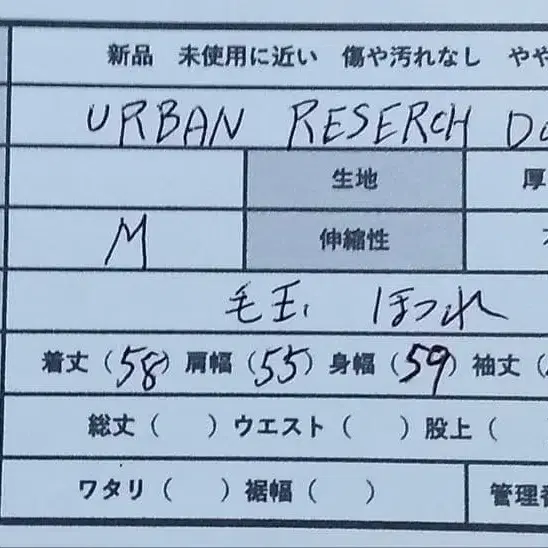 新品 未使用に近い 傷や汚れなし やや
URBAN RESERCH DO
生地 厚
M 伸縮性
毛玉、ほつれ
着丈（58）肩幅（55）身幅（59）袖丈（
総丈（　）ウエスト（　）股上（
ワタリ（　）裾幅（　） 管理番